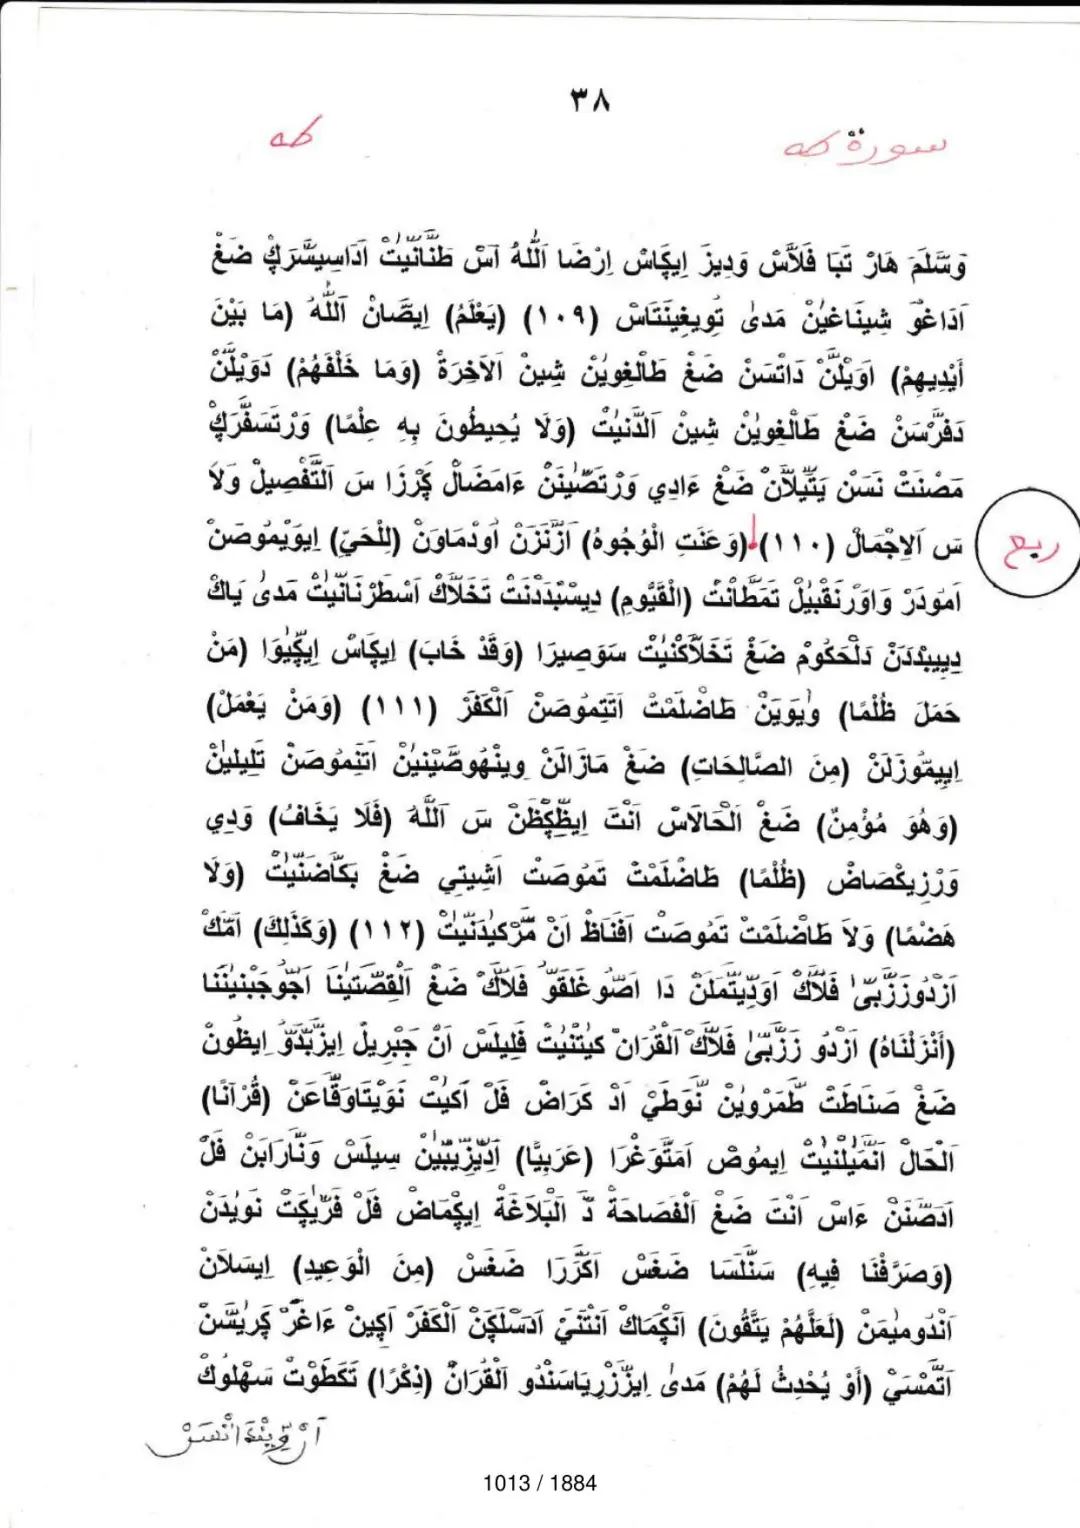 ٣٨
سورة طه
طه
وَسَّلَمَ هَارْ تَبَا فَلَاَّسْ وَدِيزَ اِيكَّاسْ اِرْضَا اَللَّهُ اَسْ طَنَّانِّيتْ اَدَاسِيسَّرَكْ ضَغْ
اَدَاغُو شِينَاغِيْنْ مَدىٰ تُويغِينَتَاسْ (١٠٩) (يَعْلَمُ) اِيصَّانْ اَللَّهُ (مَا بَيْنَ
أَيْدِيهِمْ) اَوَيْلَنْ دَاتْسَنْ ضَغْ طَالْغِويْنْ شِينْ اَلَاخِرَةْ (وَمَا خَلْفَهُمْ) دَوَيْلَنْ
دَفَرْسَنْ ضَغْ طَالْغِويْنْ شِينْ اَلدُّنْيْتْ (وَلَا يُحِيطُونَ بِهِ عِلْمًا) وَرْتَسَفْرَكْ
مَصْنَتْ نَسَنْ يَتِّيلَانْ ضَغْ ءَادِي وَرْتَصِّينَنْ ءَامَضَالْ كَرْزَا سَ اَلتَّفْصِيلْ وَلَا
سَ اَلِاجْمَالْ (١١٠) (وَعَنَتِ الْوُجُوهُ) اَزَّنْزَنْ اَودْمَاوَنْ (لِلْحَيِّ) اِيوَيْمُوصَنْ
ربع
اَمُودَرْ وَاوَرْنَقْبِيلْ تَمَطَّانْتْ (الْقَيُّومِ) دِيسْبَدْدَنْتْ تَخَلَّاكْ اَسْطَرْنَانِّيتْ مَدىٰ يَاكْ
دِيبِدْدَنْ دَلْحَكُومْ ضَغْ تَخَلَّاكَنِّيتْ سَوَصِيرَا (وَقَدْ خَابَ) اِيكَّاسْ اِيكْيُوَا (مَنْ
حَمَلَ ظُلْمًا) وِيَوَينْ طَاضْلَمْتْ اَتَتِمُوصَنْ اَلْكَفَرْ (١١١) (وَمَنْ يَعْمَلْ)
اِيِيمُوزَلَنْ (مِنَ الصَّالِحَاتِ) ضَغْ مَازَالَنْ وِينْهُوصِّينِيْنْ اَتَنِمُوصَنْ تَلِيلِيْنْ
(وَهُوَ مُؤْمِنٌ) ضَغْ اَلْحَالَاسْ اَنْتَ اِيظَّكَّظَنْ سَ اَللَّهُ (فَلَا يَخَافُ) وَدِي
وَرْزِيكْصَاضْ (ظُلْمًا) طَاضْلَمْتْ تَمُوصَتْ اَشِيتِي ضَغْ بَكَّاضَنِّيتْ (وَلَا
هَضْمًا) وَلَا طَاضْلَمْتْ تَمُوصَتْ اَفَنَاظْ اَنْ مَّرْكِيدَنِّيتْ (١١٢) (وَكَذَلِكَ) اَمَّكْ
اَزْدُوزَزَّبىٰ فَلَاكْ اَوَدِيتْمَلَنْ دَا اَصُوغَلَقَوْ فَلَاكْ ضَغْ اَلْقِصَّتِينَا اَجُوجَبْنِينَا
(أَنْزَلْنَاهُ) اَزْدُو زَزَّبىٰ فَلَاكْ اَلْقُرَانْ كِيتْنِيتْ فَلِيلَسْ اَنْ جَبْرِيلْ اِيزَّبَّدُو اِيظُونْ
ضَغْ صَنَاطَتْ طَمَرْوِينْ نُّوَطَيْ اَدْ كَرَاضْ فَلْ اَكِيتْ نَوَيْتَاوَقَّاعَنْ (قُرْآنًا)
اَلْحَالْ اَنَّمِيلْنِيتْ اِيمُوصْ اَمَتُوغْرَا (عَرَبِيًّا) اَدِيزِّيبِّينْ سِيلَسْ وَنَّارَابَنْ فَلْ
اَدَصَّنَنْ ءَاسْ اَنْتَ ضَغْ اَلْفَصَاحَةْ دَ اَلْبَلَاغَةْ اِيكِّمَاضْ فَلْ فَرِّيكَتْ نَويْدَنْ
(وَصَرَّفْنَا فِيهِ) سَنَّلَسَا ضَغَسْ اَكَرَّرَا ضَغَسْ (مِنَ الْوَعِيدِ) اِيسَلَانْ
اَنْدُومِيْمَنْ (لَعَلَّهُمْ يَتَّقُونَ) اَنْكَّمَاكْ اَنْتَنَيْ اَدَسَّلَكَنْ اَلْكَفَرْ اَكِينْ ءَاغَرْ كَرِيسَّنْ
اَتَّمْسَيْ (أَوْ يُحْدِثُ لَهُمْ) مَدىٰ اِيزَّزْرِيَاسَنْدُو اَلْقُرَانْ (ذِكْرًا) تَكَطَوْتْ سَهْلُوكْ
1013 / 1884